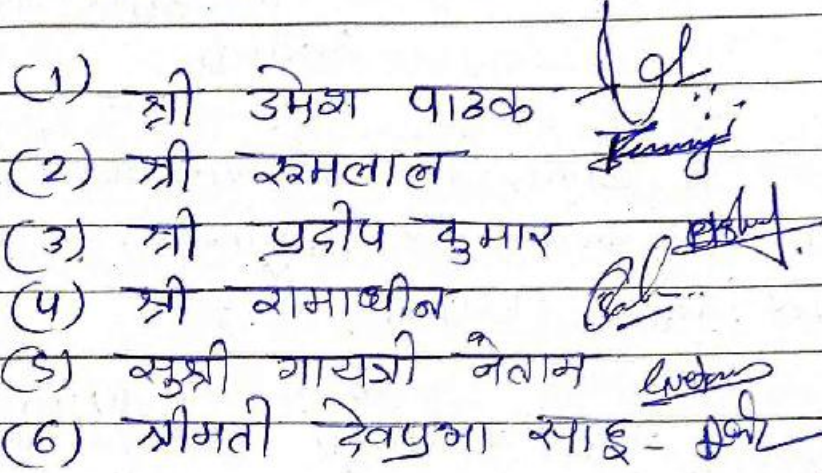 (1) श्री उमेश पाठक
(2) श्री रूमलाल
(3) श्री प्रदीप कुमार
(4) श्री रामाधीन
(5) सुश्री गायत्री नेताम
(6) श्रीमती देवप्रभा साहू -